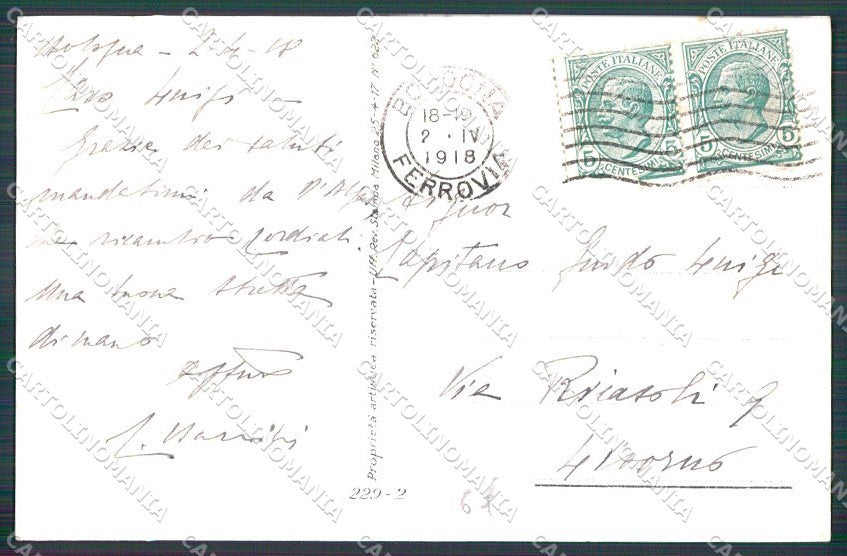 Bologna - 2-4-18
Caro Luigi
Grazie dei saluti
mandatimi da
ne ricambio cordiali
una buona stretta
di mano
Affmo
Proprietà artistica riservata - Uff. Rev. Stampa Milano 25-4-17 N. 022
229-2
BOLOGNA
18-19
2 · IV
1918
FERROVIA
POSTE ITALIANE
5 5
CENTESIMI
POSTE ITALIANE
5 5
CENTESIMI
Signor
Capitano Guido Luigi
Via Ricasoli 9
Livorno
CARTOLINOMANIA